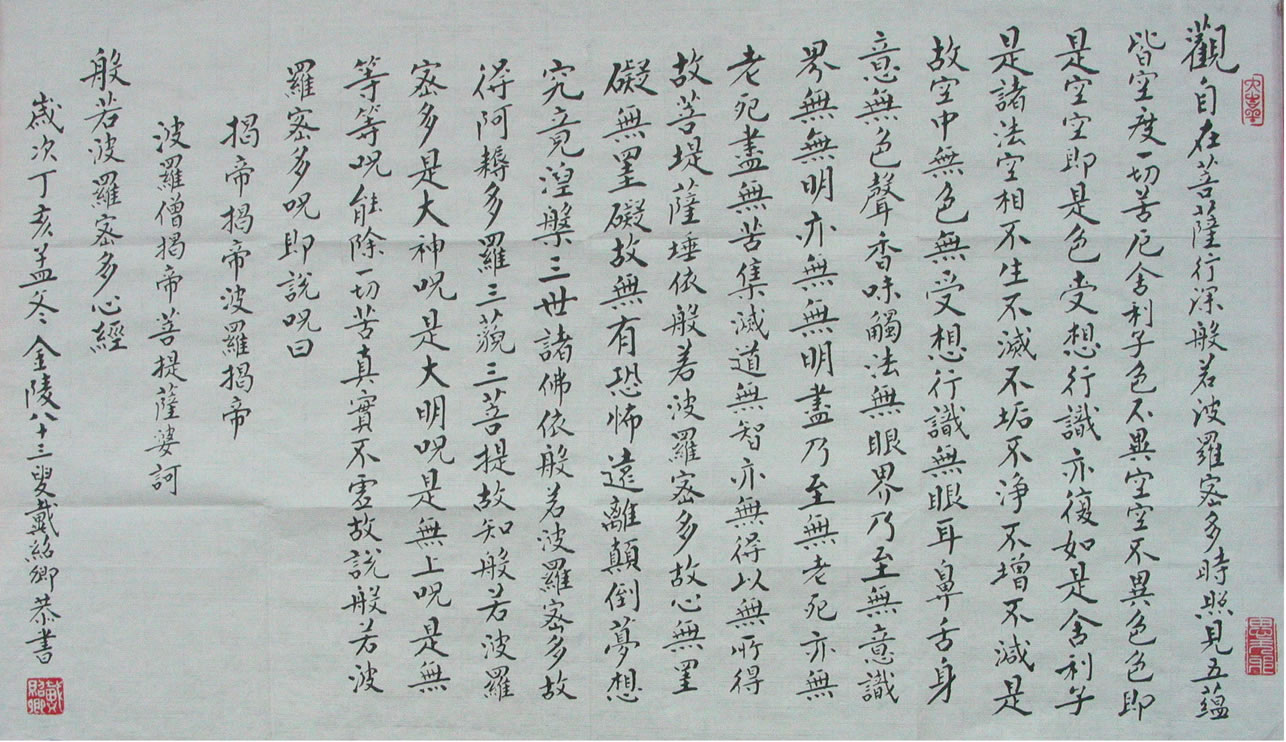 觀自在菩薩行深般若波羅密多時照見五蘊
皆空度一切苦厄舍利子色不異空空不異色色即
是空空即是色受想行識亦復如是舍利子
是諸法空相不生不滅不垢不淨不增不減是
故空中無色無受想行識無眼耳鼻舌身
意無色聲香味觸法無眼界乃至無意識
界無無明亦無無明盡乃至無老死亦無
老死盡無苦集滅道無智亦無得以無所得
故菩堤薩埵依般若波羅密多故心無罣
礙無罣礙故無有恐怖遠離顛倒夢想
究竟涅槃三世諸佛依般若波羅密多故
得阿耨多羅三藐三菩提故知般若波羅
密多是大神呪是大明呪是無上呪是無
等等呪能除一切苦真實不虛故說般若波
羅密多呪即說呪曰
揭帝揭帝波羅揭帝
波羅僧揭帝菩提薩婆訶
般若波羅密多心經
歲次丁亥孟冬金陵八十三叟戴紹卿恭書
戴紹卿